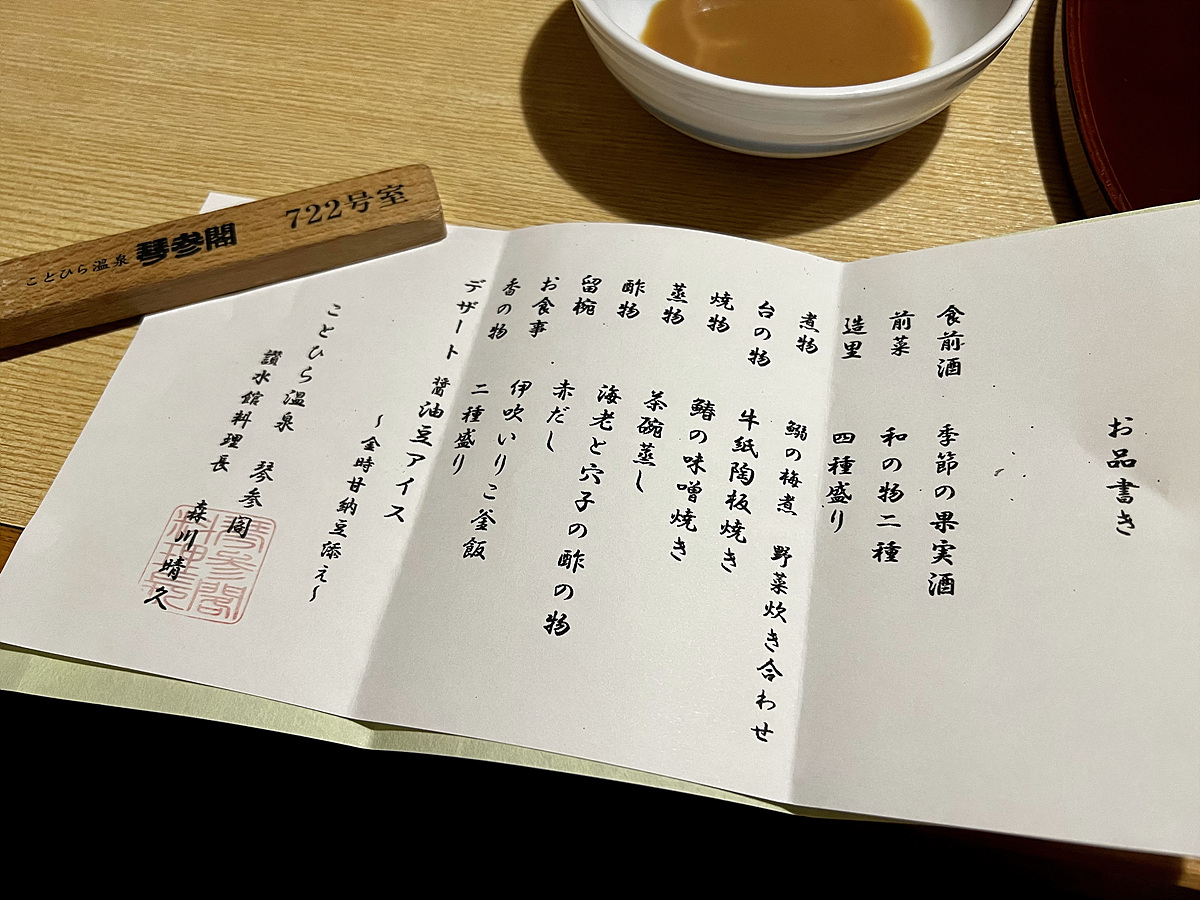 お品書き
食前酒 季節の果実酒
前菜 和の物二種
造里 四種盛り
煮物 鰯の梅煮 野菜炊き合わせ
台の物 牛紙陶板焼き
焼物 鰆の味噌焼き
蒸物 茶碗蒸し
酢物 海老と穴子の酢の物
留椀 赤だし
お食事 伊吹いりこ釜飯
香の物 二種盛り
デザート 醤油豆アイス
~金時甘納豆添え~
ことひら温泉 琴参閣
讃水館料理長 森川晴久
琴参閣
料理長
ことひら温泉 琴参閣 722号室